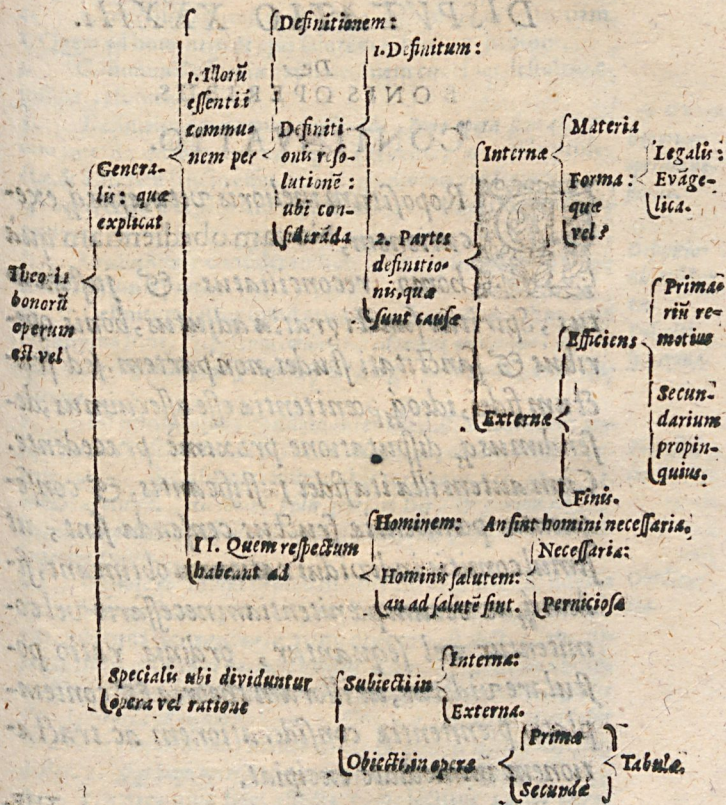 Theoria
bonorũ
operum
est vel
Genera-
lis: quæ
explicat
1. Illorũ
essentiã
commu-
nem per
Definitionem:
Definiti-
onis reso-
lutionẽ:
ubi con-
siderãda
1. Definitum:
2. Partes
definitio-
nis, quæ
sunt causæ
Internæ
Materia
Forma:
quæ
vel?
Legalis:
Evãge-
lica.
Externæ
Efficiens
Prima-
riũ re=
motius
Secun-
darium
propin-
quius.
Finis.
II. Quem respectum
habeant ad
Hominem: An sint homini necessaria.
Hominis salutem:
an ad salutẽ sint.
Necessaria:
Perniciosa
Specialis ubi dividuntur
opera vel ratione
Subiecti in
Interna:
Externa.
Obiecti, in opera
Primæ
Secundæ
Tabulæ.